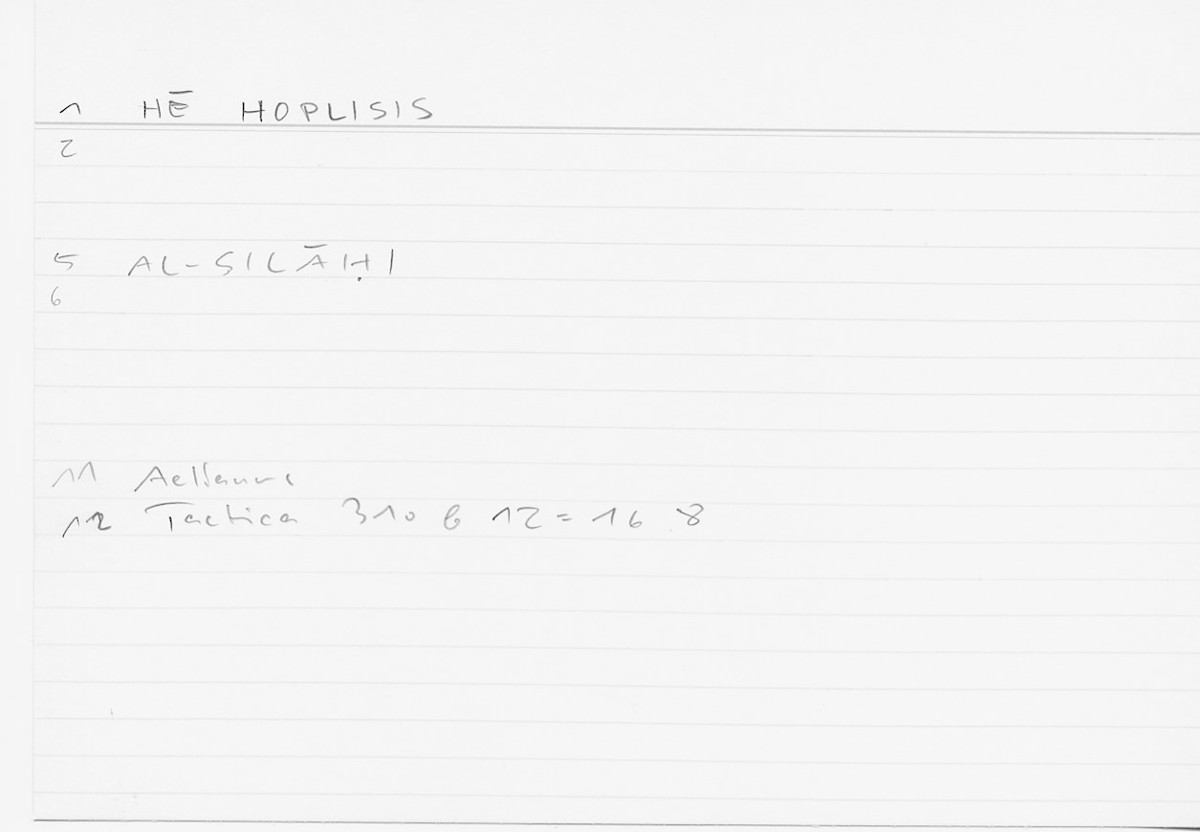 1 HĒ HOPLISIS
2
5 AL-SILĀḤI
6
11 Aelianus
12 Tactica 310 b 12 = 16 8